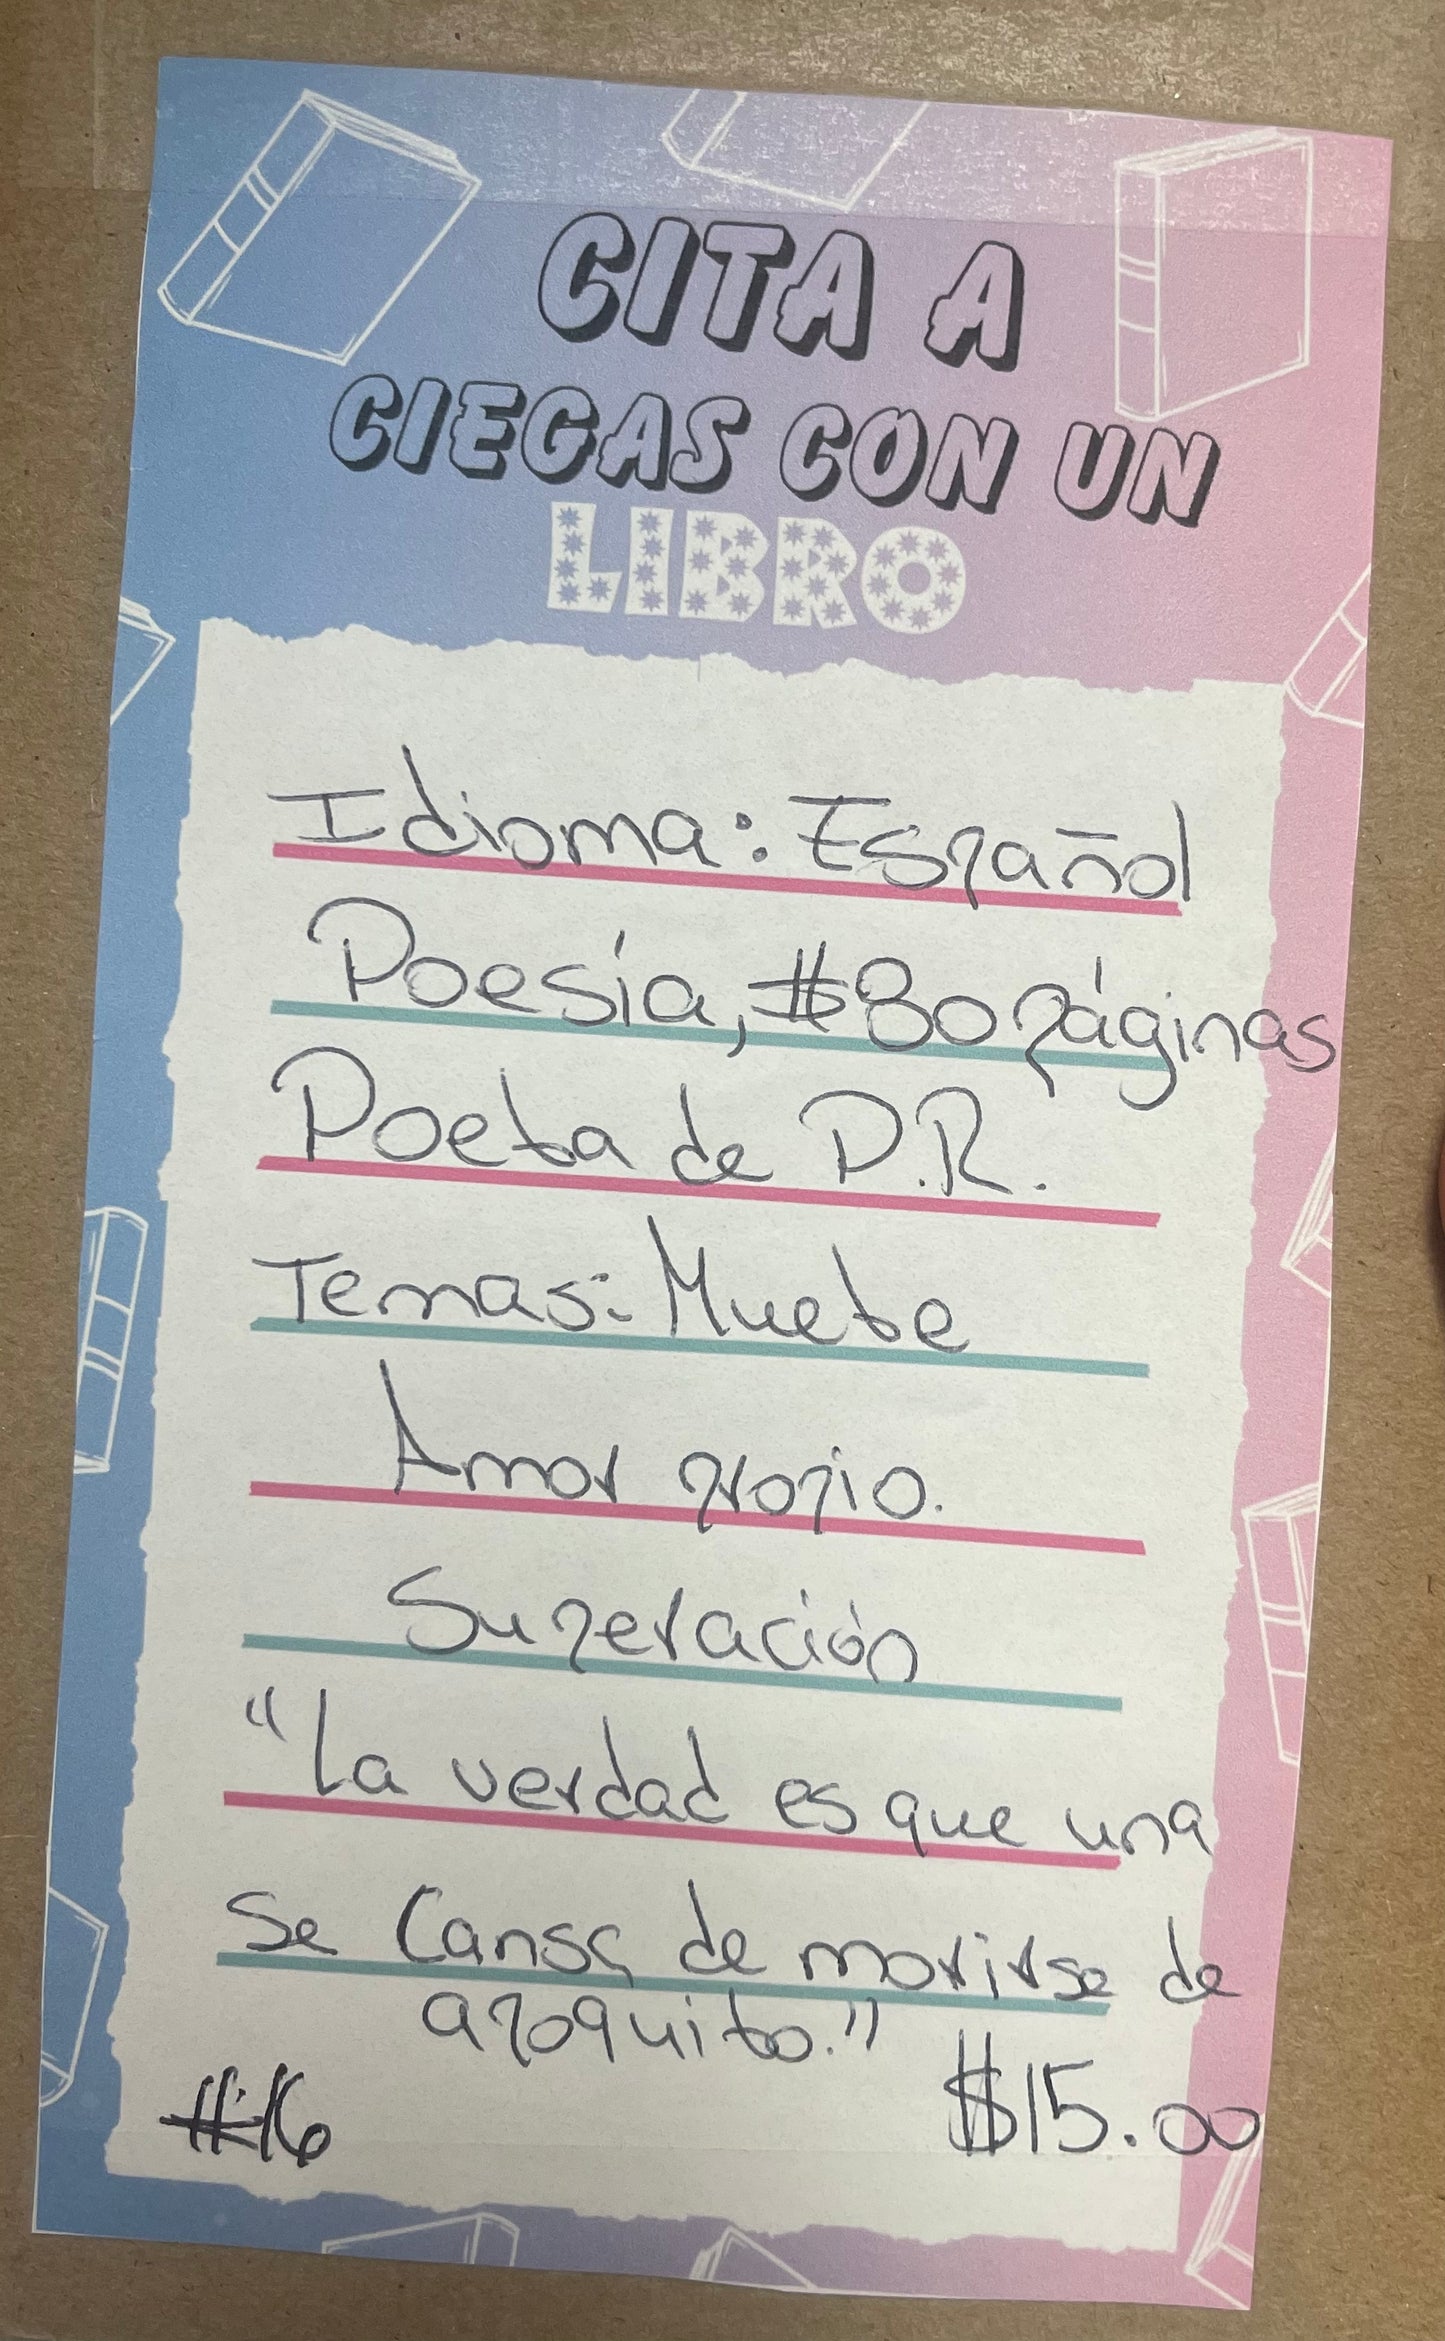 CITA A
CIEGAS CON UN
LIBRO
Idioma: Español
Poesía, #80 páginas
Poeta de P.R.
Temas: Muete
Amor propio.
Superación
"La verdad es que una
se cansa de morirse de
apoquito."
#16 $15.00